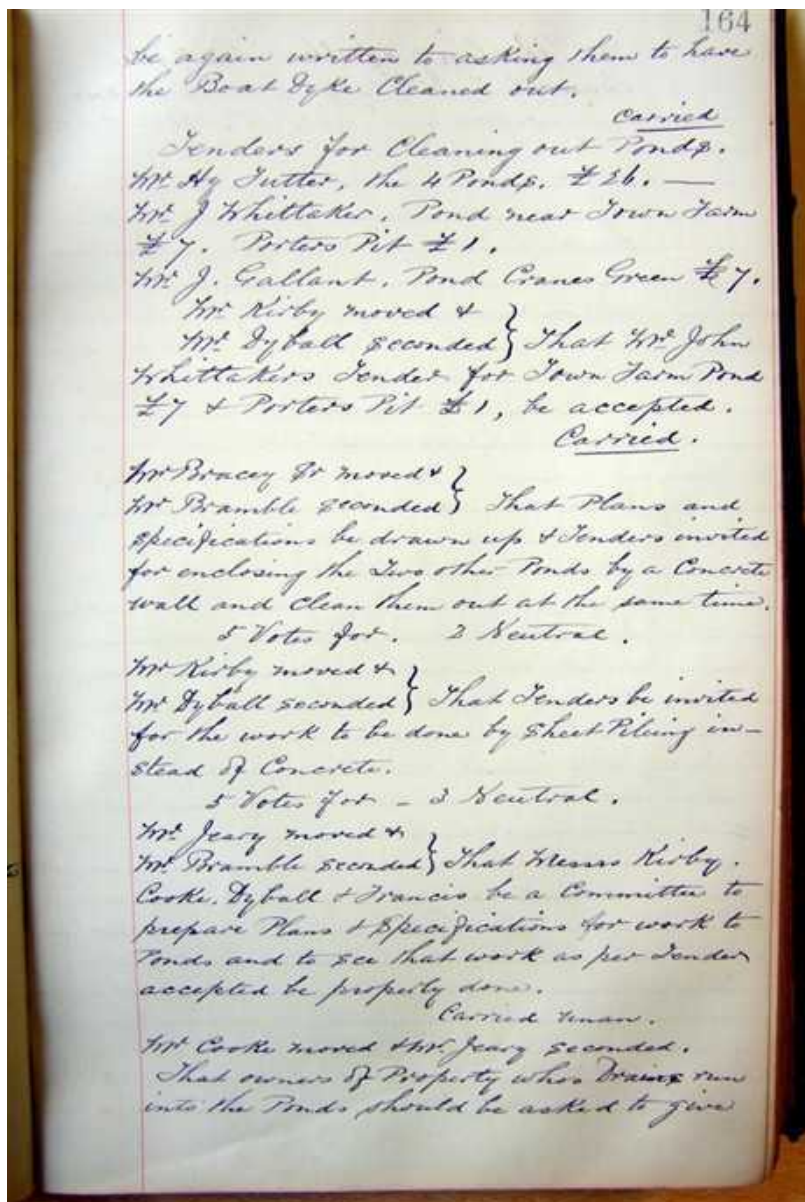 164
be again written to asking them to have
the Boat Dyke Cleaned out.
Carried
Tenders for Cleaning out Ponds.
Mr Hy Tutter, the 4 Ponds. £26. —
Mr J Whittaker. Pond near Town Farm
£7. Porters Pit £1.
Mr J. Gallant. Pond Cranes Green £7.
Mr Kirby moved &
Mr Dyball seconded } That Mr John
Whittakers Tender for Town Farm Pond
£7 & Porters Pit £1, be accepted.
Carried.
Mr Bracey Sr moved &
Mr Bramble seconded } That Plans and
specifications be drawn up & Tenders invited
for enclosing the Two other Ponds by a Concrete
wall and clean them out at the same time.
5 Votes for. 2 Neutral.
Mr Kirby moved &
Mr Dyball seconded } That Tenders be invited
for the work to be done by Sheet Piling in-
stead of Concrete.
5 Votes for - 3 Neutral.
Mr. Jeary moved &
Mr. Bramble seconded } That Messrs Kirby.
Cooke. Dyball & Francis be a Committee to
prepare Plans & Specifications for work to
Ponds and to see that work as per Tender
accepted be properly done.
Carried unan.
Mr Cooke moved & Mr. Jeary seconded.
That owners of Property whos Drains run
into the Ponds should be asked to give